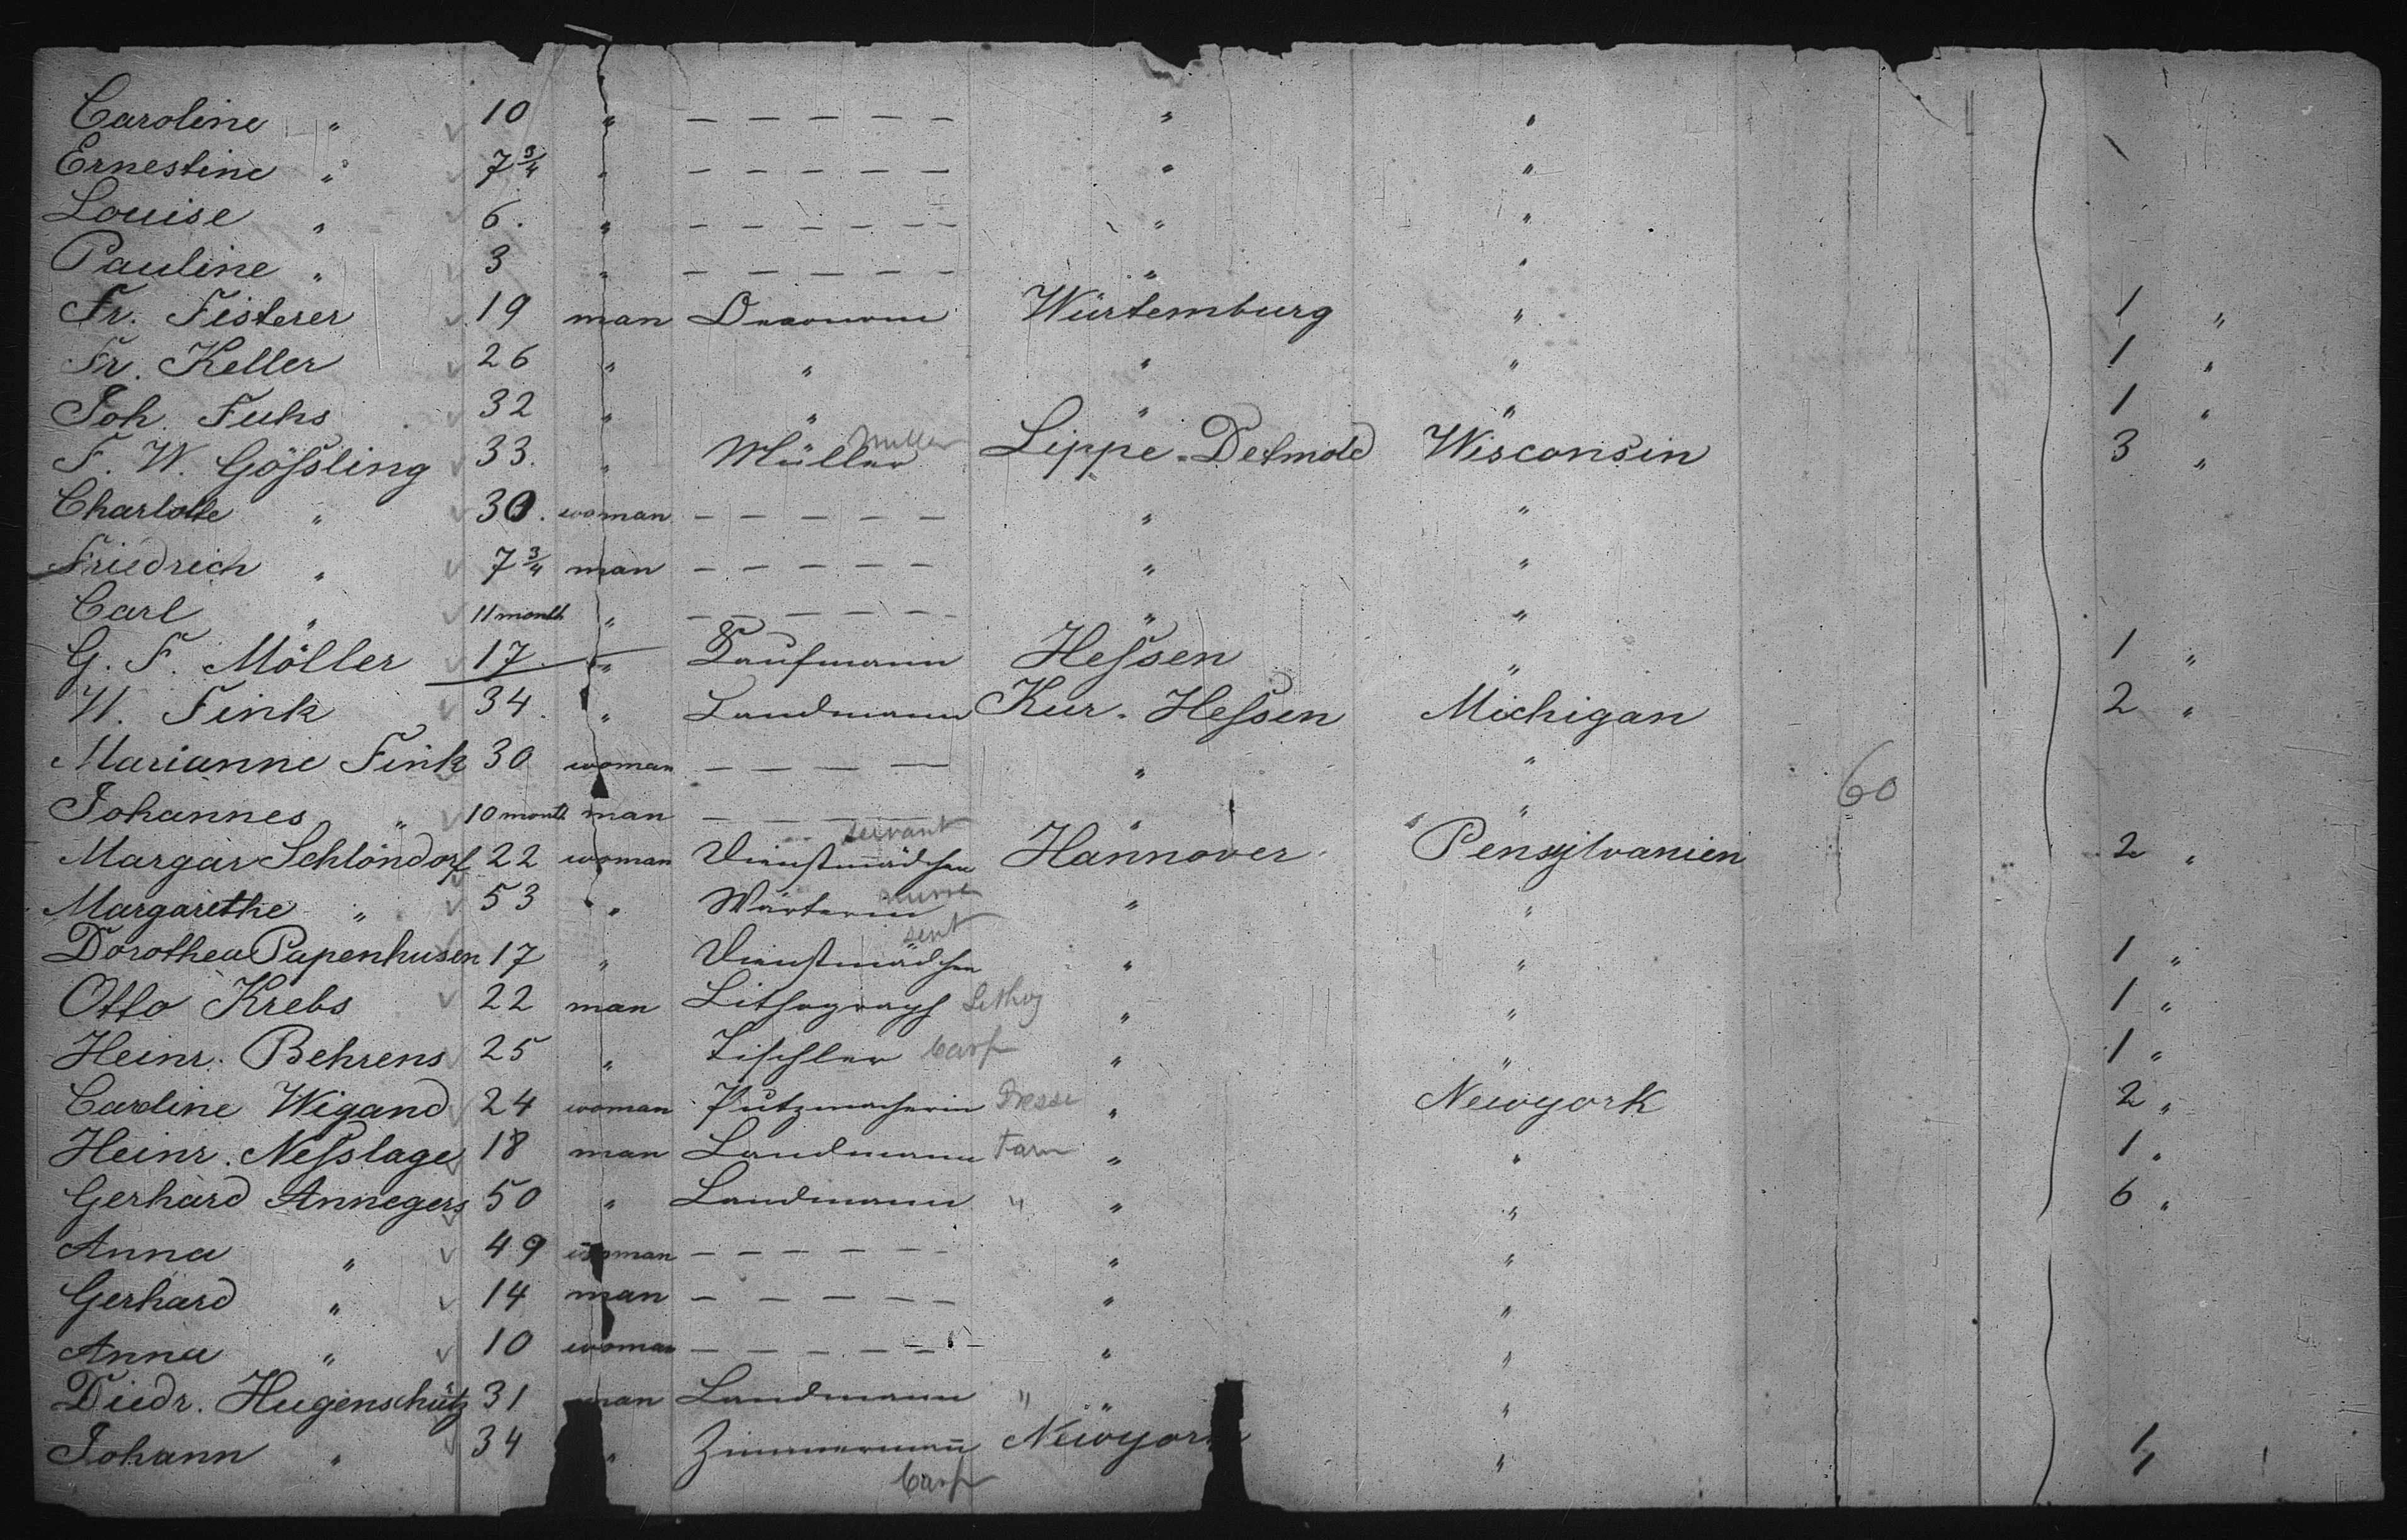 Caroline " 10 " — — — — — " "
Ernestine " 7 3/4 " — — — — — " "
Louise " 6. " — — — — — — " "
Pauline " 3 " — — — — — " "
Fr. Fisterer 19 man Oeconom Würtemburg " 1 "
Fr. Keller 26 " " " " 1 "
Joh. Fuhs 32 " " " " 1 "
F. W. Gößling 33. " Müller Miller Lippe-Detmold Wisconsin 3 "
Charlotte " 30. woman — — — — — " "
Friedrich " 7 3/4 man — — — — — " "
Carl " 11 month " — — — — — " "
G. F. Möller 17. " Kaufmann Heßen " 1 "
H. Fink 34. " Landmann Kur-Heßen Michigan 2 "
Marianne Fink 30 woman — — — — " "
Johannes " 10 month man — — — — " "
Margar Schlöndorf 22 woman Dienstmädchen servant Hannover Pensylvanien 2 "
Margarethe " 53 " Wärterin nurse " "
Dorothea Papenhusen 17 " Dienstmädchen sevt " " 1 "
Otto Krebs 22 man Lithograph Lithog " " 1 "
Heinr. Behrens 25 " Tischler Carp " " 1 "
Caroline Wigand 24 woman Putzmacherin Dresse " Newyork 2 "
Heinr. Neßlage 18 man Landmann Farm " " 1 "
Gerhard Annegers 50 " Landmann " " " 6 "
Anna " 49 woman — — — — — — " "
Gerhard " 14 man — — — — — " "
Anna " 10 woman — — — — — — " "
Diedr. Hugenschütz 31 man Landmann " " "
Johann " 34 " Zimmermann Carp Newyork " 1 "
60